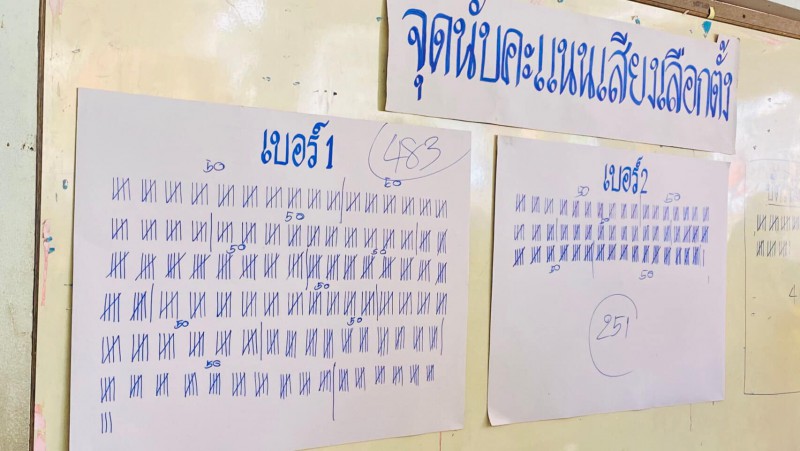 จุดนับคะแนนเสียงเลือกตั้ง
เบอร์ 1
483
50
50
50
50
50
50
50
50
50
เบอร์ 2
50
50
50
50
50
251
4